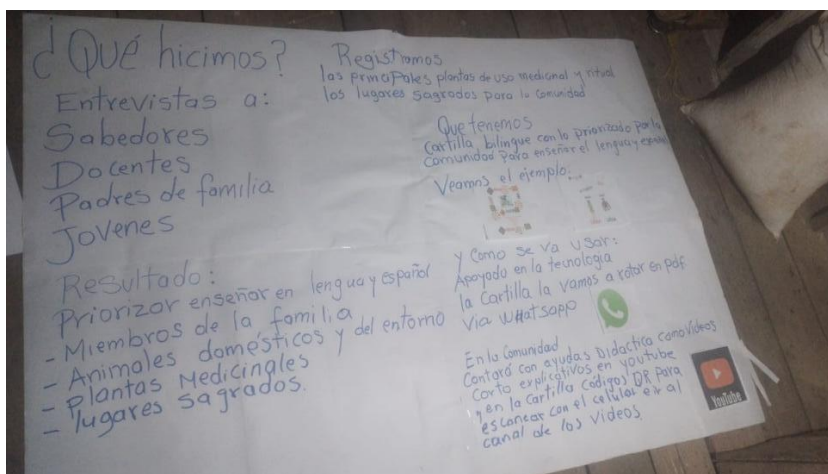 ¿Qué hicimos?
Entrevistas a:
Sabedores
Docentes
Padres de familia
Jovenes
Resultado:
Priorizar enseñar en lengua y español
- Miembros de la familia
- Animales domésticos y del entorno
- Plantas Medicinales
- lugares sagrados.
Registramos
las principales plantas de uso medicinal y ritual
los lugares sagrados para la comunidad
Que tenemos
Cartilla bilingue con lo priorizado por la
comunidad para enseñar el lengua y español
Veamos el ejemplo:
y Como se va usar:
Apoyado en la tecnologia
la Cartilla la vamos a rotar en pdf
Via WhatSapp
En la Comunidad
Contará con ayudas Didactica como Videos
Corto explicativos en youtube
y en la Cartilla Codigos QR para
escanear con el celular e ir al
canal de los videos.
YouTube